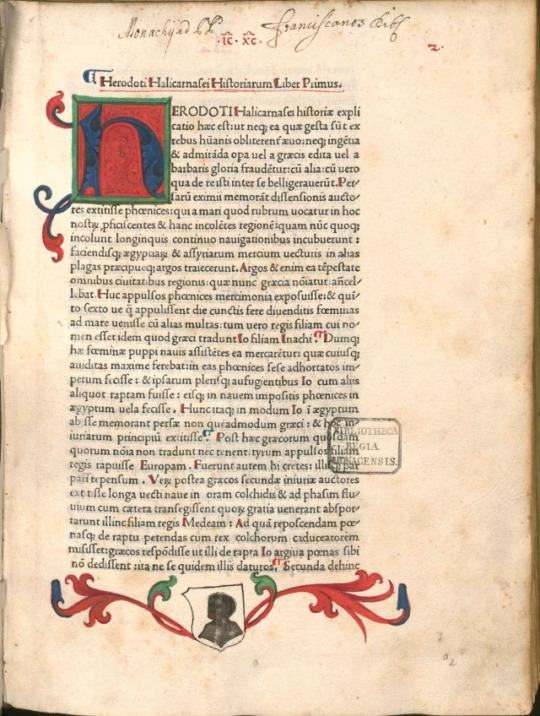 Monachij ad PP Franciscanos Bibl
·ic· ·xc·
2.
Herodoti Halicarnasei Historiarum Liber Primus.
HERODOTI Halicarnasei historiæ expli
catio hæc est: ut neq; ea quæ gesta sūt ex
rebus hūanis obliterent̄ ex æuo: neq; ingētia
& admirāda opa uel a græcis edita uel a
barbaris gloria fraudētur: cū alia: cū uero
qua de re isti inter se belligerauerūt. Per
sarū eximii memorāt dissensionis aucto-
res extitisse phœnices: qui a mari quod rubrum uocatur in hoc
nostrū, pficiscentes & hanc incolētes regionē: quam nūc quoq;
incolunt longinquis continuo nauigationibus incubuerunt:
faciendisq; ægyptiaꝝ & assyriarum mercium uecturis in alias
plagas præcipuęq; argos traiecerunt. Argos & enim ea tēpestate
omnibus ciuitatibus regionis: quæ nunc græcia nōiatur: ātecel-
lebat. Huc appulsos phœnices mercimonia exposuisse: & quī
to sexto ue q̄ appulissent die cunctis fere diuenditis fœminas
ad mare uenisse cū alias multas: tum uero regis filiam cui no-
men esset idem quod græci tradunt Io filiam Inachi. Dumq;
hæ fœminæ puppi nauis assistētes ea mercarētur: quæ cuiusq;
auiditas maxime ferebat: in eas phœnices sese adhortatos im-
petum fecisse: & ipsarum plerisq; aufugientibus Io cum aliis
aliquot raptam fuisse: eisq; in nauem impositis phœnices in
ægyptum uela fecisse. Hunc itaq; in modum Io ī ægyptum
abisse memorant persæ non queadmodum græci: & hoc in-
iuriarum principiū extitisse. Post hæc græcorum quosdam
quorum nōia non tradunt nec tenent: tyrum appulsos filiam
regis rapuisse Europam. Fuerunt autem hi cretes: illisq; par
pari repensum. Veꝝ postea græcos secundæ iniuriæ auctores
extitisse longa uecti naue in oram colchidis & ad phasim flu-
uium cum cætera transegissent quoꝝ gratia uenerant abspor-
tarunt illinc filiam regis Medeam: Ad quā reposcendam pœ-
nasq; de raptu petendas cum rex colchorum caduceatorem
misisset: græcos respōdisse ut illi de rapta Io argiua pœnas sibi
nō dedissent: ita ne se quidem illis daturos. Secunda dehinc
BIBLIOTHECA
REGIA
MONACENSIS.
a2